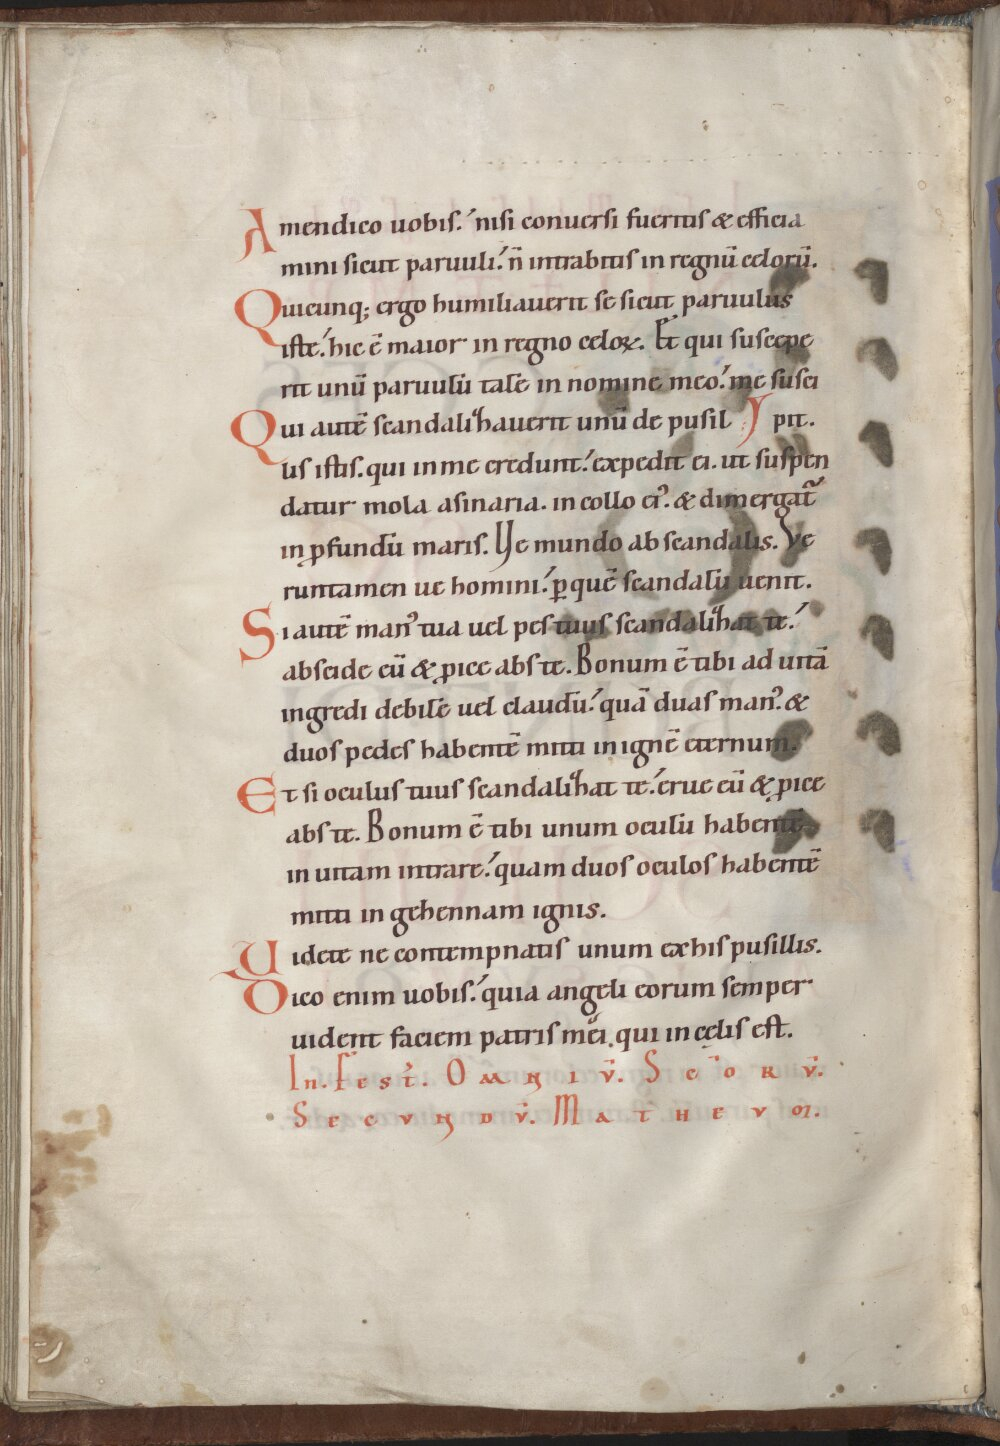 Amen dico uobis. nisi conuersi fueritis & efficia
mini sicut paruuli. n̄ intrabitis in regnū cęlorū.
Quicunq; ergo humiliauerit se sicut paruulus
iste. hic ē maior in regno cęloꝝ. Et qui suscepe
rit unū paruulū talē in nomine meo. me susci
Qui autē scandalizauerit unū de pusil pit.
lis istis. qui in me credunt. expedit ei. ut suspen
datur mola asinaria. in collo ei᾽. & dimergat᷑
in ꝓfundū maris. Ve mundo ab scandalis. Ve
runtamen ue homini. ꝑ quē scandalū uenit.
Si autē man᾽ tua uel pes tuus scandalizat te.
abscide eū & ꝓice abs te. Bonum ē tibi ad uitā
ingredi debilē uel claudū. quā duas man᾽. &
duos pedes habentē mitti in ignē eternum.
Et si oculus tuus scandalizat te. erue eū & ꝓice
abs te. Bonum ē tibi unum oculū habentē
in uitam intrare. quam duos oculos habentē
mitti in gehennam ignis.
Uidete ne contempnatis unum ex his pusillis.
Dico enim uobis. quia angeli eorum semper
uident faciem patris mei. qui in cęlis est.
In. Fest̄. Omniv̄. Sc̄orv̄.
Secvndv̄. Mathevm.